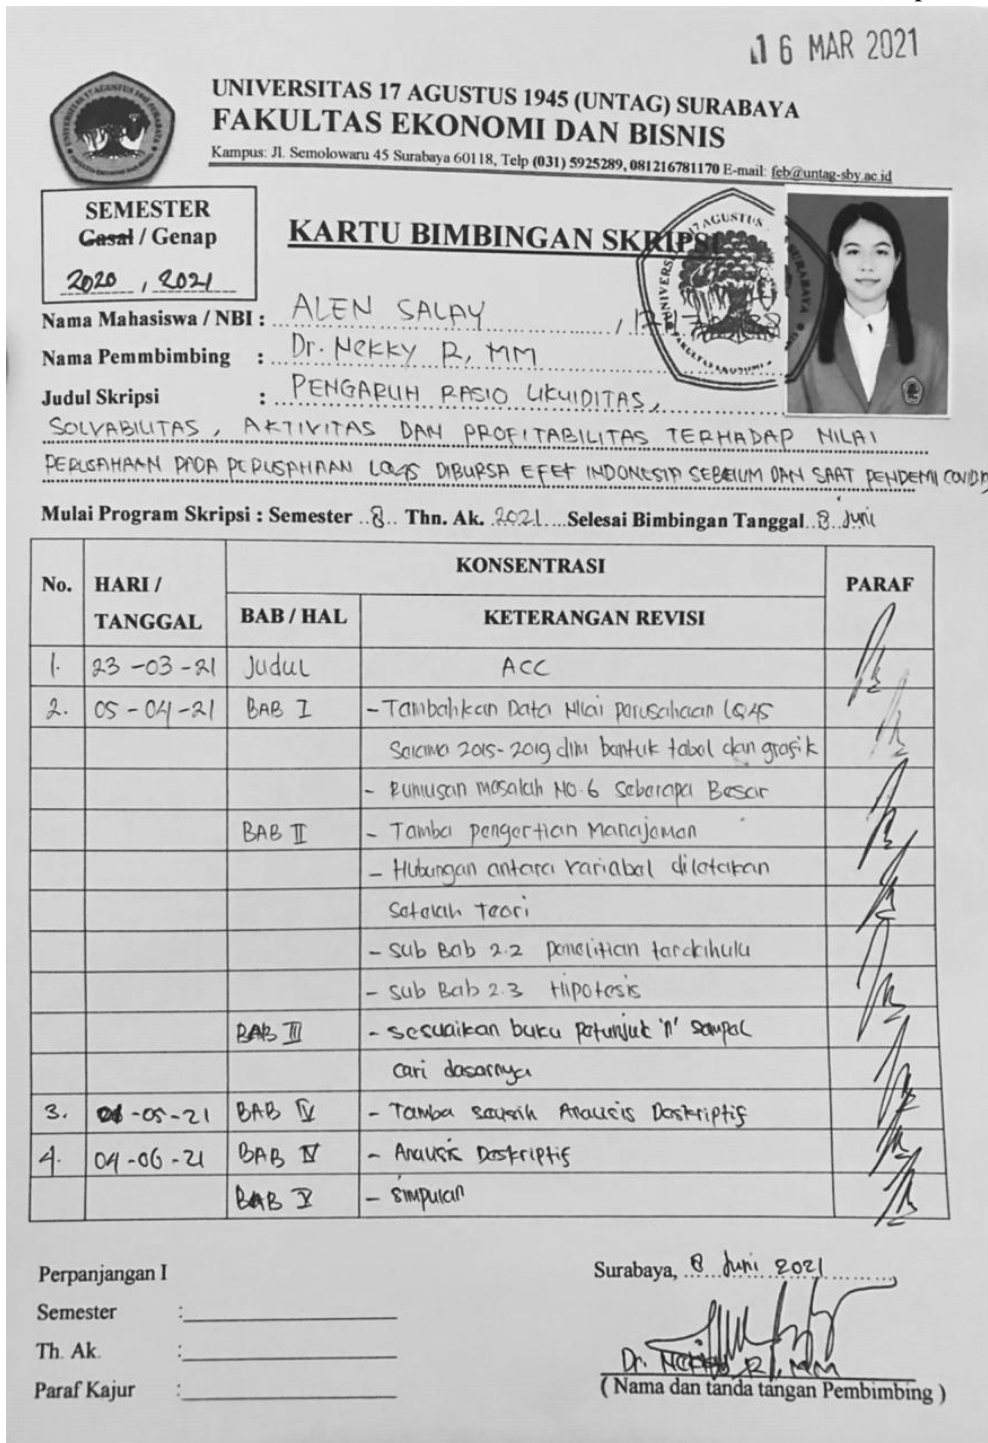 16 MAR 2021
UNIVERSITAS 17 AGUSTUS 1945 (UNTAG) SURABAYA
FAKULTAS EKONOMI DAN BISNIS
Kampus: Jl. Semolowaru 45 Surabaya 60118, Telp (031) 5925289, 081216781170 E-mail: feb@untag-sby.ac.id
SEMESTER
Gasal / Genap
2020 , 2021
KARTU BIMBINGAN SKRIPSI
Nama Mahasiswa / NBI : ALEN SALAY ,
Nama Pemmbimbing : Dr. Nekky R, MM
Judul Skripsi : PENGARUH RASIO LIKUIDITAS,
SOLVABILITAS, AKTIVITAS DAN PROFITABILITAS TERHADAP NILAI
PERUSAHAAN PADA PERUSAHAAN LQ45 DIBURSA EFEK INDONESIA SEBELUM DAN SAAT PENDEMI COVID 19
Mulai Program Skripsi : Semester ..8.. Thn. Ak. .2021....Selesai Bimbingan Tanggal..8..Juni
No. HARI / TANGGAL KONSENTRASI PARAF
BAB / HAL KETERANGAN REVISI
1. 23-03-21 Judul ACC
2. 05-04-21 BAB I - Tambahkan Data Nilai perusahaan LQ45
Selama 2015-2019 dlm bentuk tabel dan grafik
- Rumusan masalah NO.6 Seberapa Besar
BAB II - Tamba pengertian Manajemen
- Hubungan antara variabel diletakan
Setelah Teori
- Sub Bab 2.2 penelitian terdahulu
- Sub Bab 2.3 Hipotesis
BAB III - sesuaikan buku petunjuk "n" sampel
cari dasarnya
3. -05-21 BAB IV - Tamba Analisis Deskriptif
4. 04-06-21 BAB IV - Analisis Deskriptif
BAB V - Simpulan
Perpanjangan I
Semester :
Th. Ak. :
Paraf Kajur :
Surabaya, 8 Juni 2021
Dr. Nekky R, MM
( Nama dan tanda tangan Pembimbing )